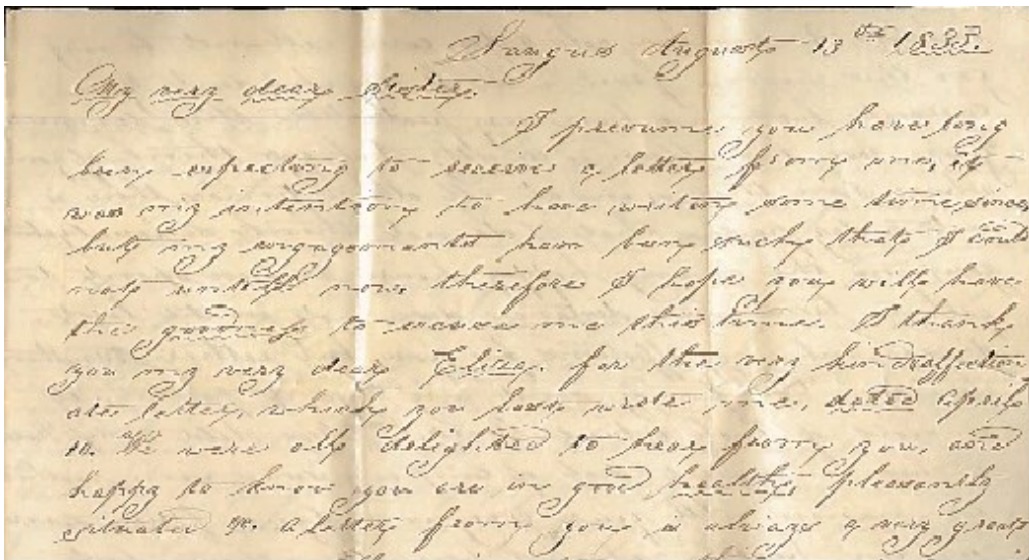 Saugus August 13th 1835.
My very dear Sister.
I presume you have long
been expecting to receive a letter from me, it
was my intention to have written some time since
but my engagements have been such that I could
not untill now, therefore I hope you will have
the goodness to excuse me this time. I thank
you my very dear Eliza. for the very kind & affection
ate letter, which you have wrote me, dated April
10. We were all delighted to hear from you, and
happy to know you are in good health, pleasantly
situated &c. a letter from you is always a very great